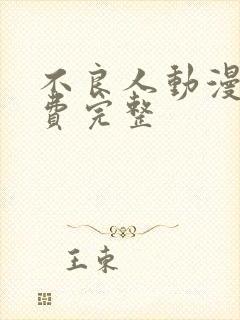 不良人動漫
費完整
王東